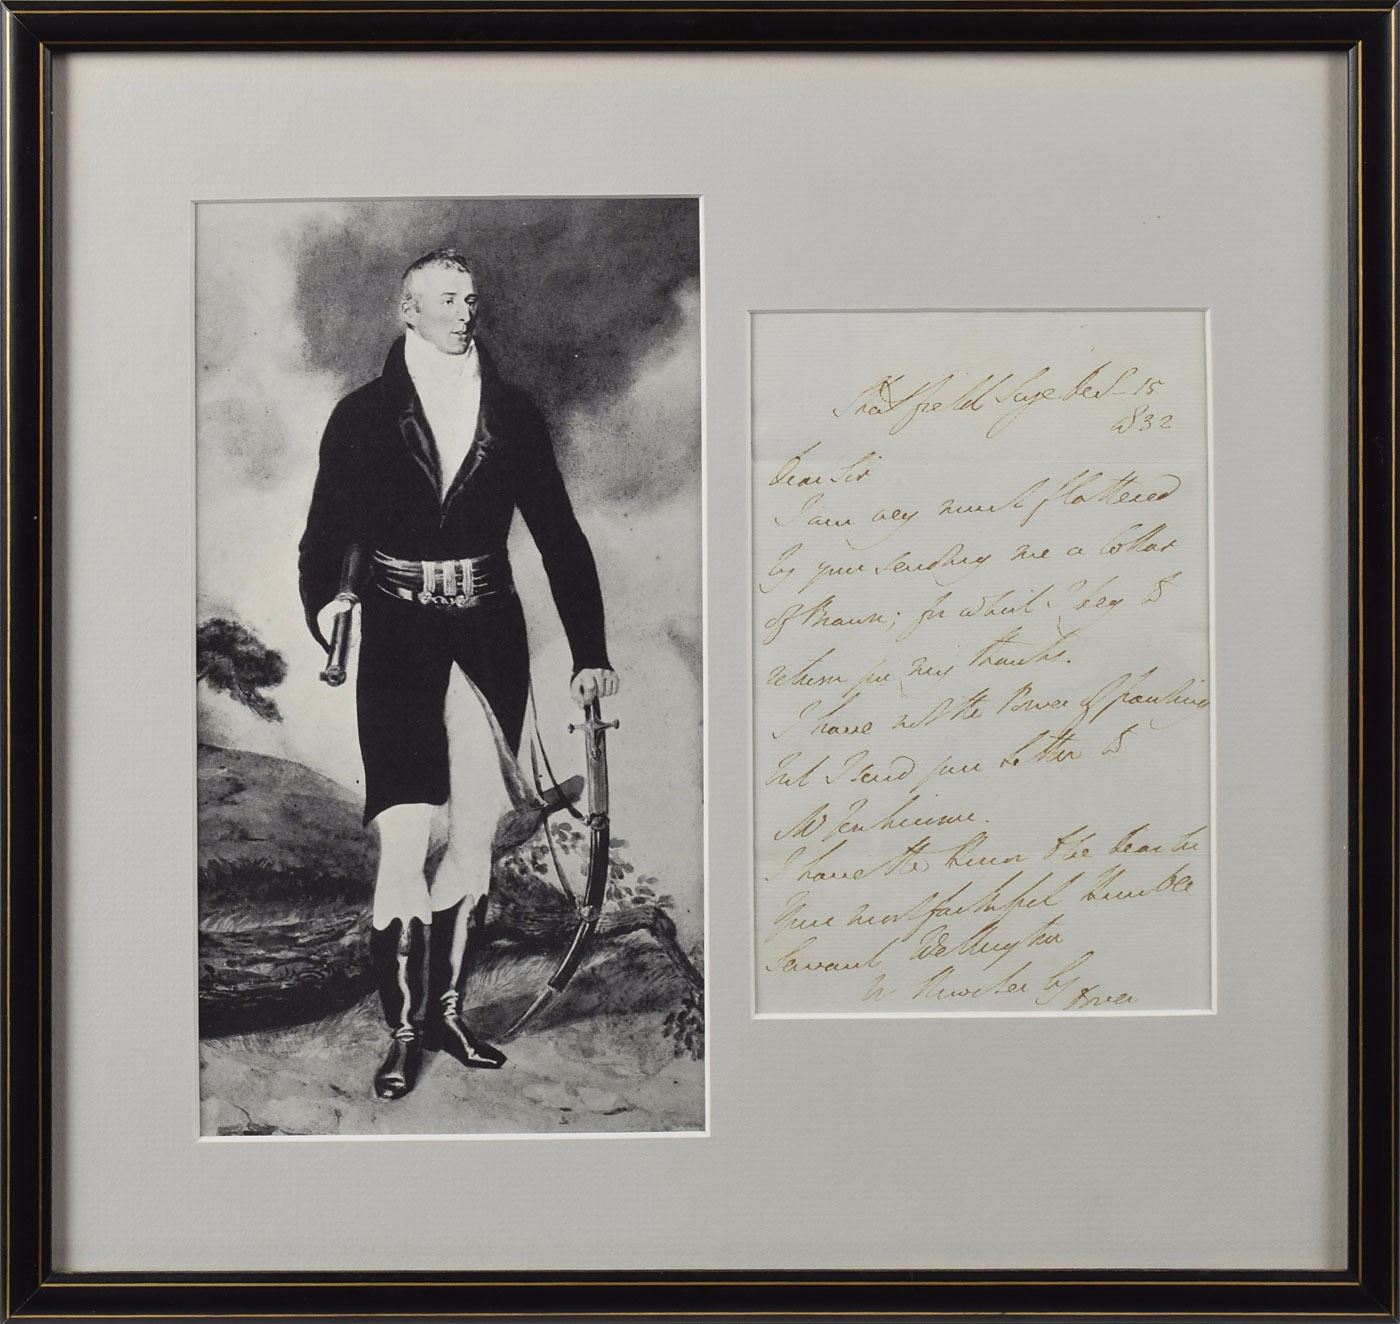 Stratfield Saye Dec 15
1832
Dear Sir
I am very much flattered
by your sending me a Collar
of Brawn; for which I beg to
return you my thanks.
I have not the Power of franking
but I send your letter to
Mr
I have the honor to be Dear Sir
Your most faithful Humble
Servant Wellington